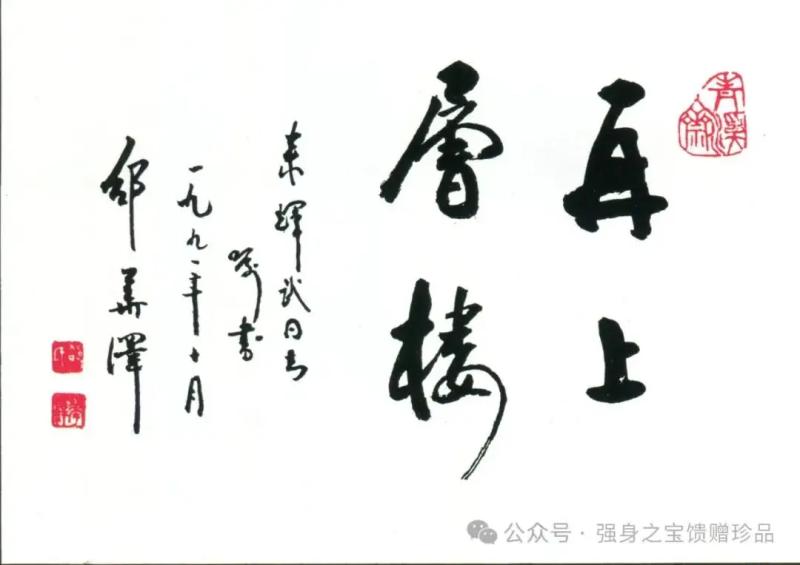 再上
層楼
来輝武同志
嘱書
一九九一年十月
邵華澤
公众号·强身之宝馈赠珍品